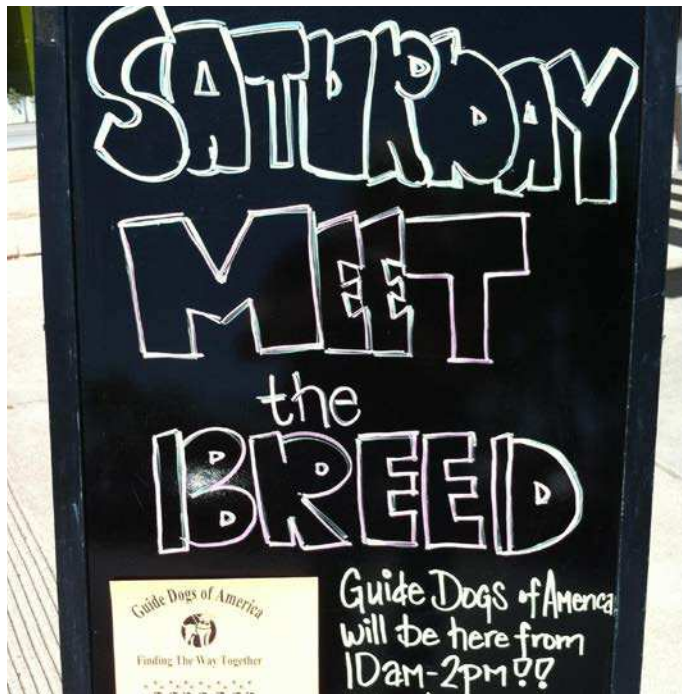 SATURDAY
MEET
the
BREED
Guide Dogs of America
Finding The Way Together
Guide Dogs of America
will be here from
10am-2pm!!